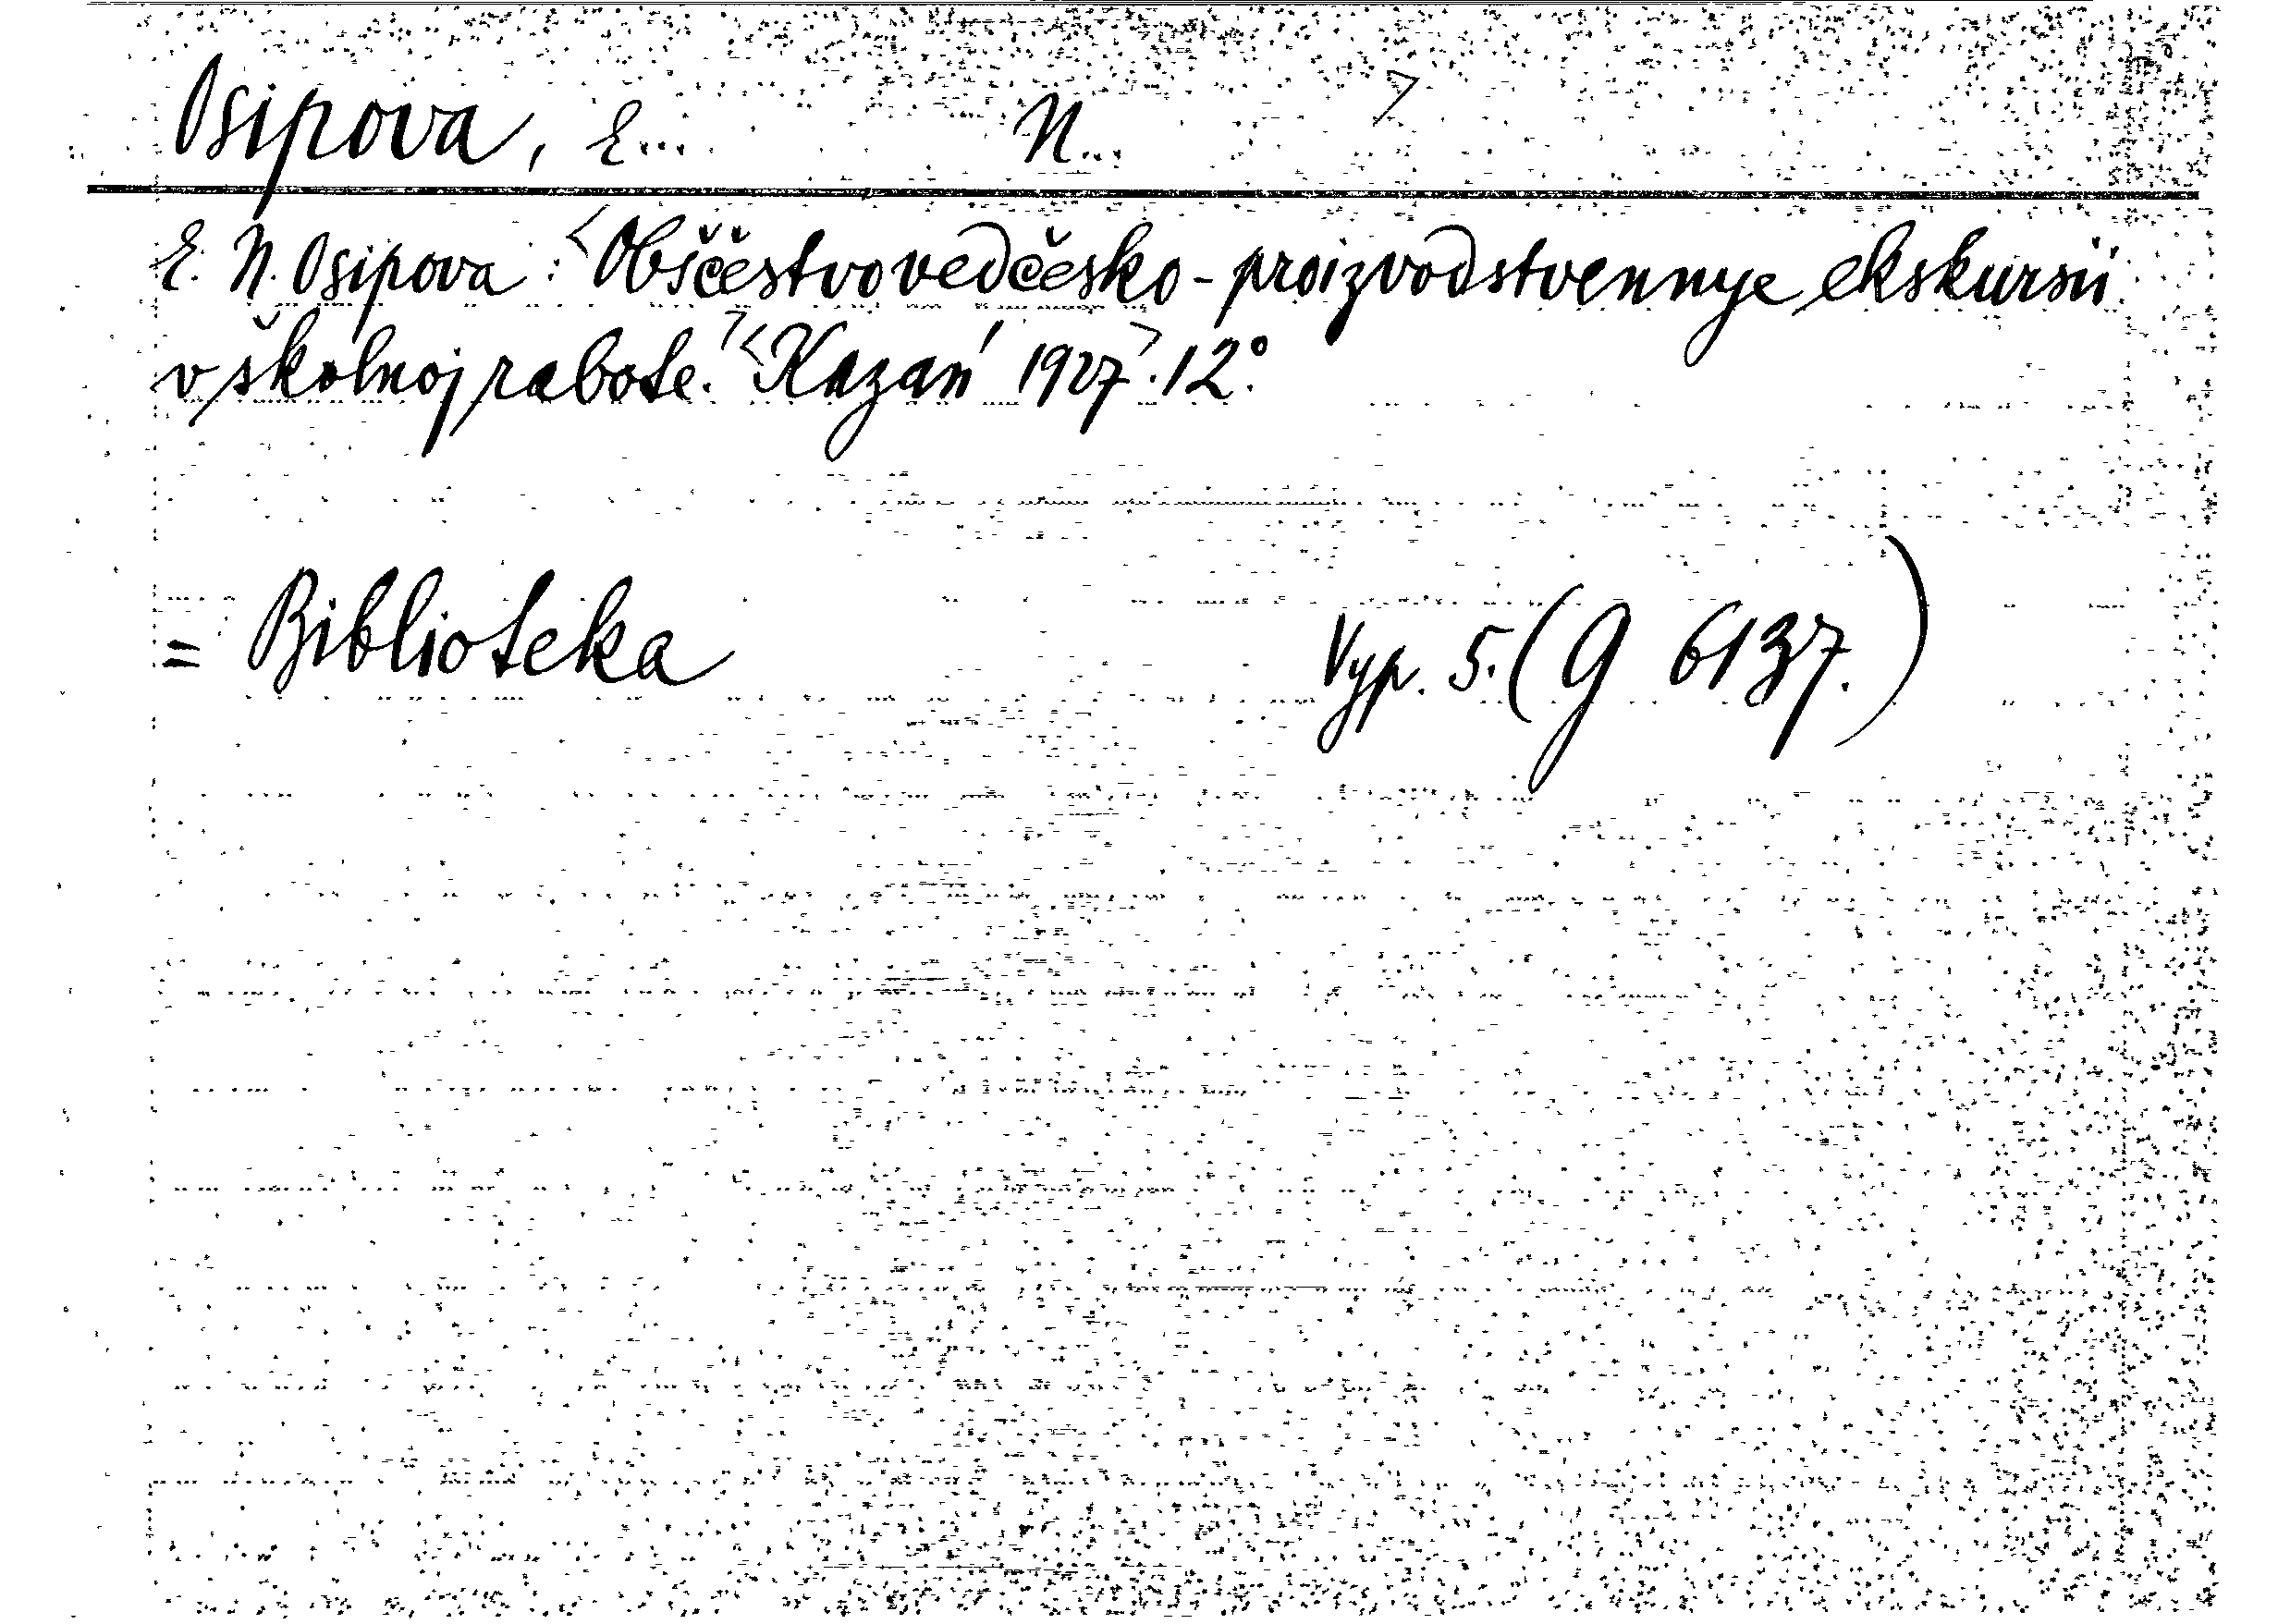 Osipova, E... N... >
E. N. Osipova: <Obščestvovedčesko-proizvodstvennye ekskursii
v škol'noj rabote.> <Kazań 1927>. 12°.
= Biblioteka Vyp. 5. (G 6137.)